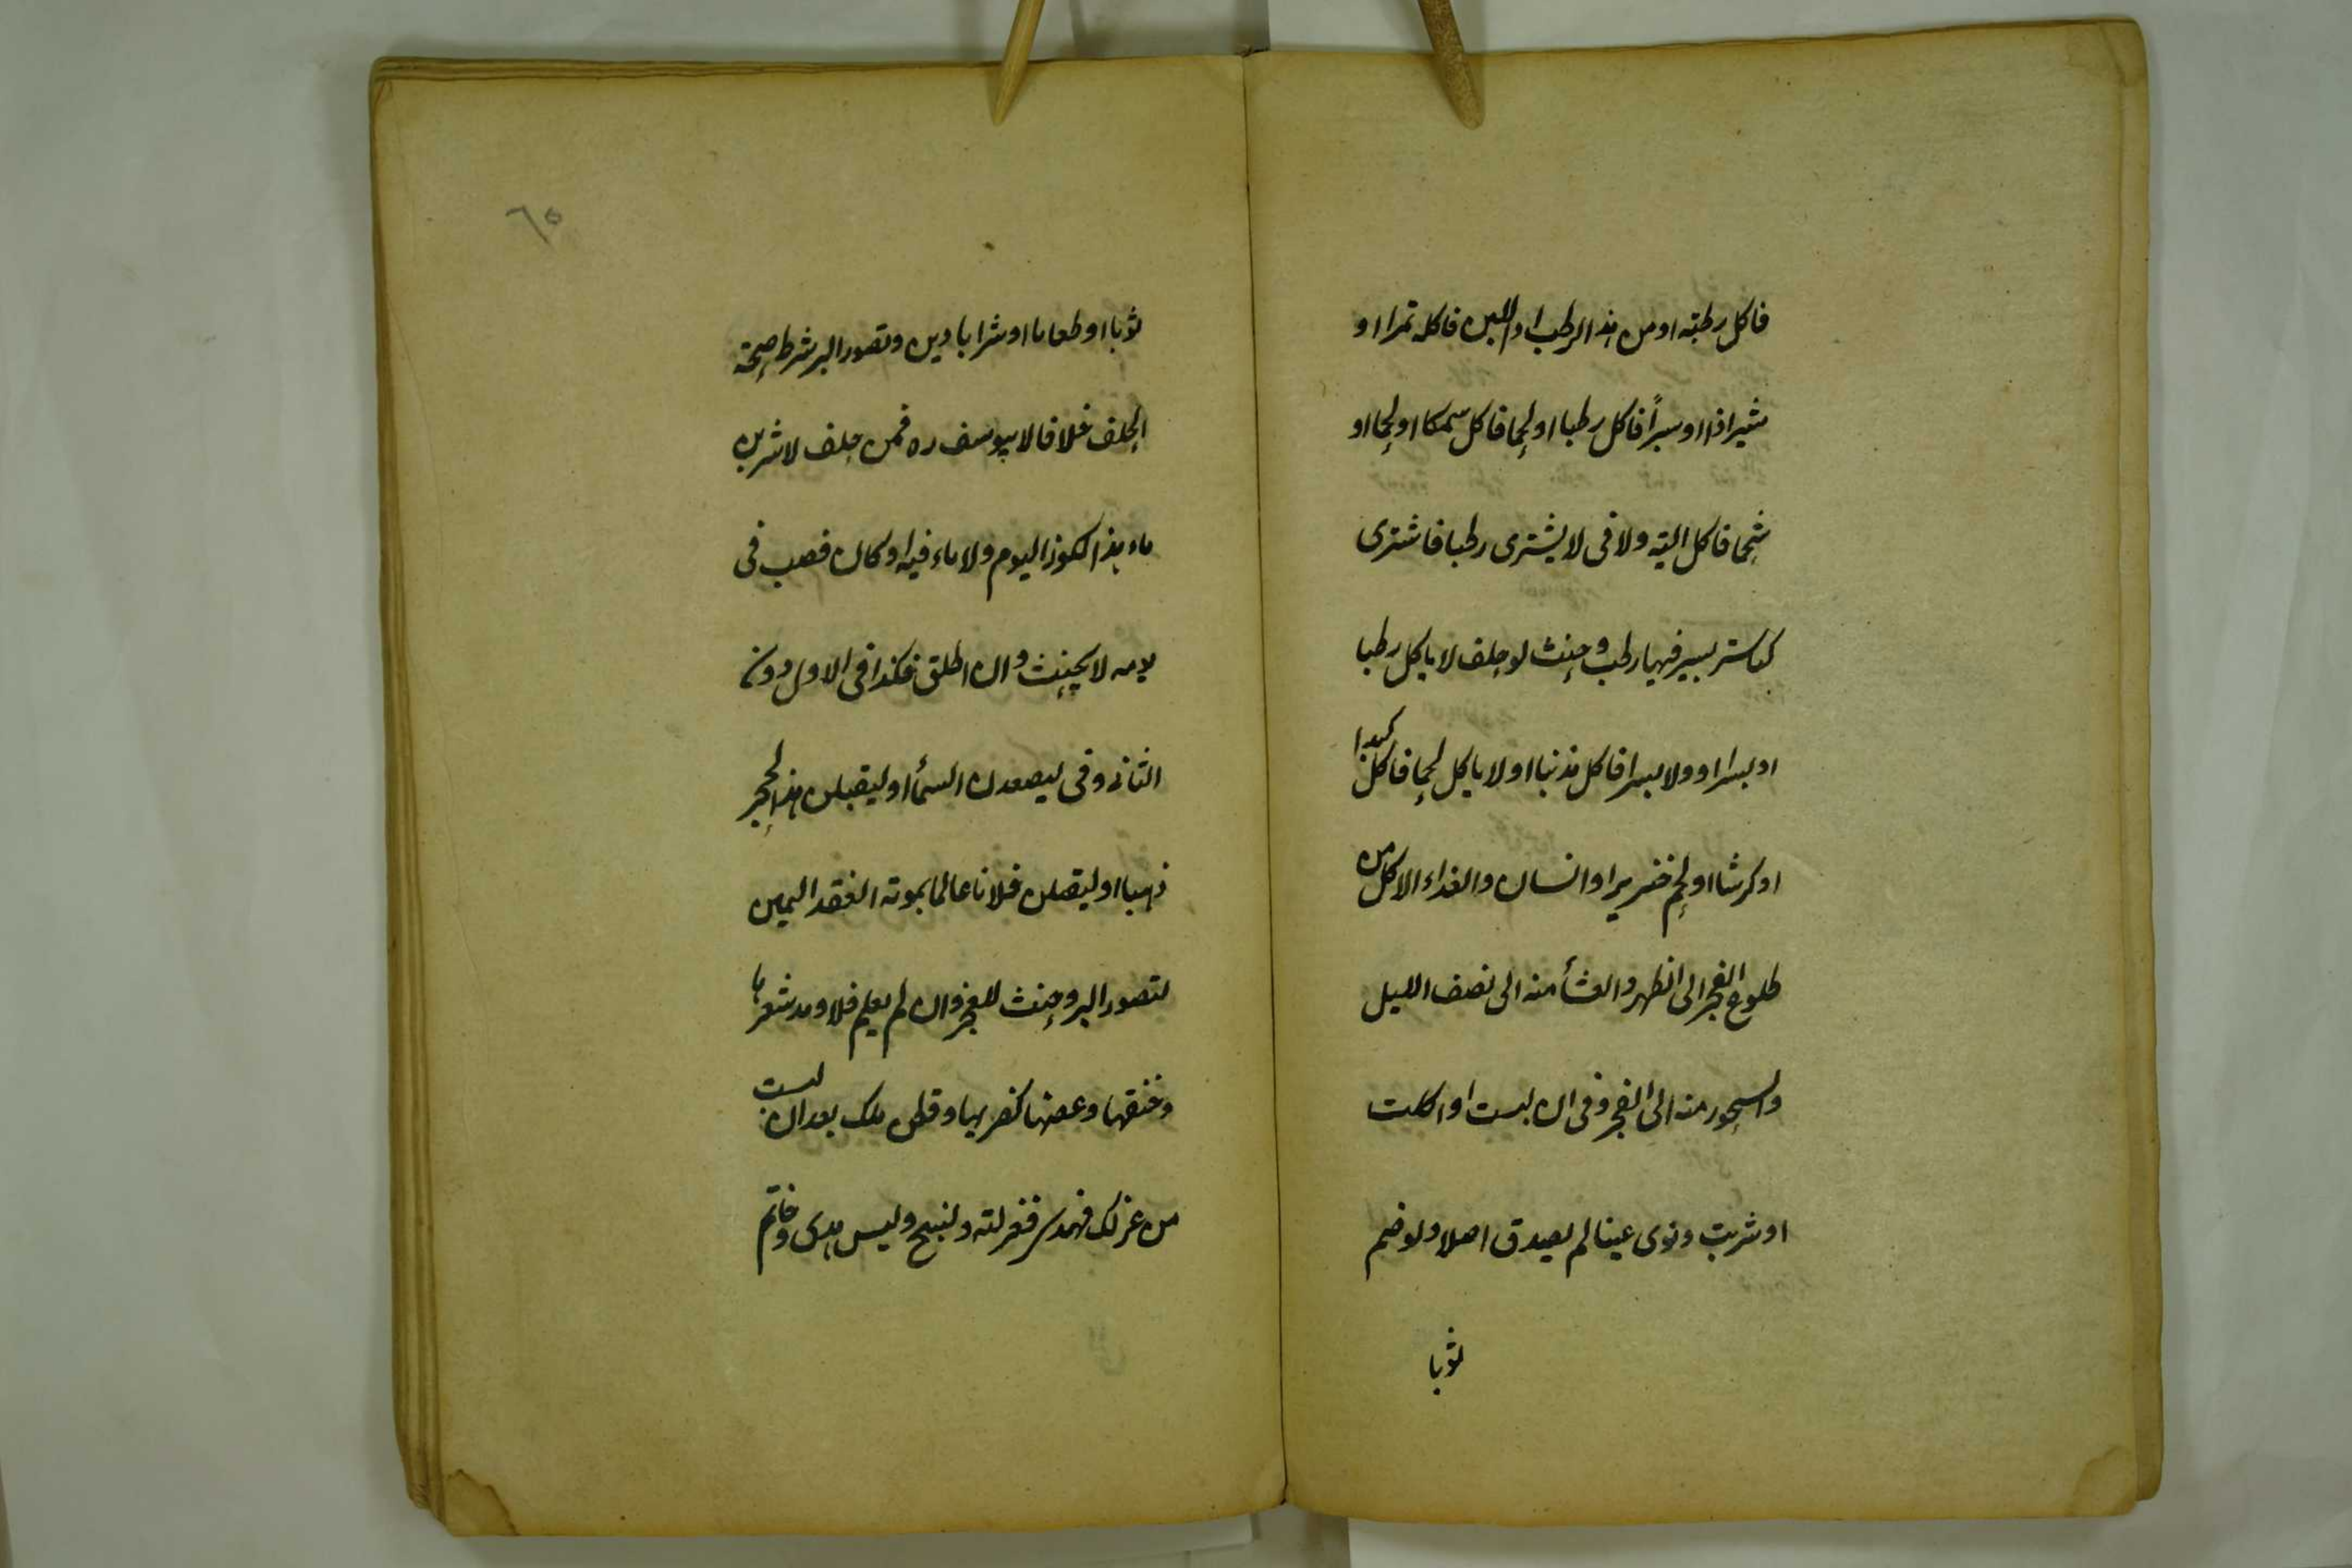 فاكل رطبه او من هذا الرطب او اللبن فاكله تمرا او
شيرازا او بسراً فاكل رطبا او لحما فاكل سمكا او لحما او
شحما فاكل الية ولا فى لا يشترى رطبا فاشترى
كباسة بسر فيها رطب وحنث لو حلف لا ياكل رطبا
او بسرا او ولا بسرا فاكل مذنبا او لا ياكل لحما فاكل كبدا
او كرشا او لحم خنزير او انسان والغداء الاكل من
طلوع الفجر الى الظهر والعشأ منه الى نصف الليل
والسحور منه الى الفجر وفى ان لبست او اكلت
او شربت ونوى عينا لم يصدق اصلا ولو ضم
ثوبا
٦٥
ثوبا او طعاما او شرابا دين وتصور البر شرط صحة
الحلف خلافا لابيوسف ره فمن حلف لاشربن
ماء هذا الكوز اليوم ولا ماء فيه او كان فصب فى
يومه لا يحنث وان اطلق فكذا فى الاول دون
الثانى وفى ليصعدن السمأ او ليقلبن هذا الحجر
ذهبا او ليقتلن فلانا عالما بموته انعقد اليمين
لتصور البر وحنث للعجز وان لم يعلم فلا ومد شعرها
وخنقها وعضها كضربها وقطن ملك بعد ان لبست
من غزلك فهدى فغزلته ولنسج ولبس هدى وخاتم